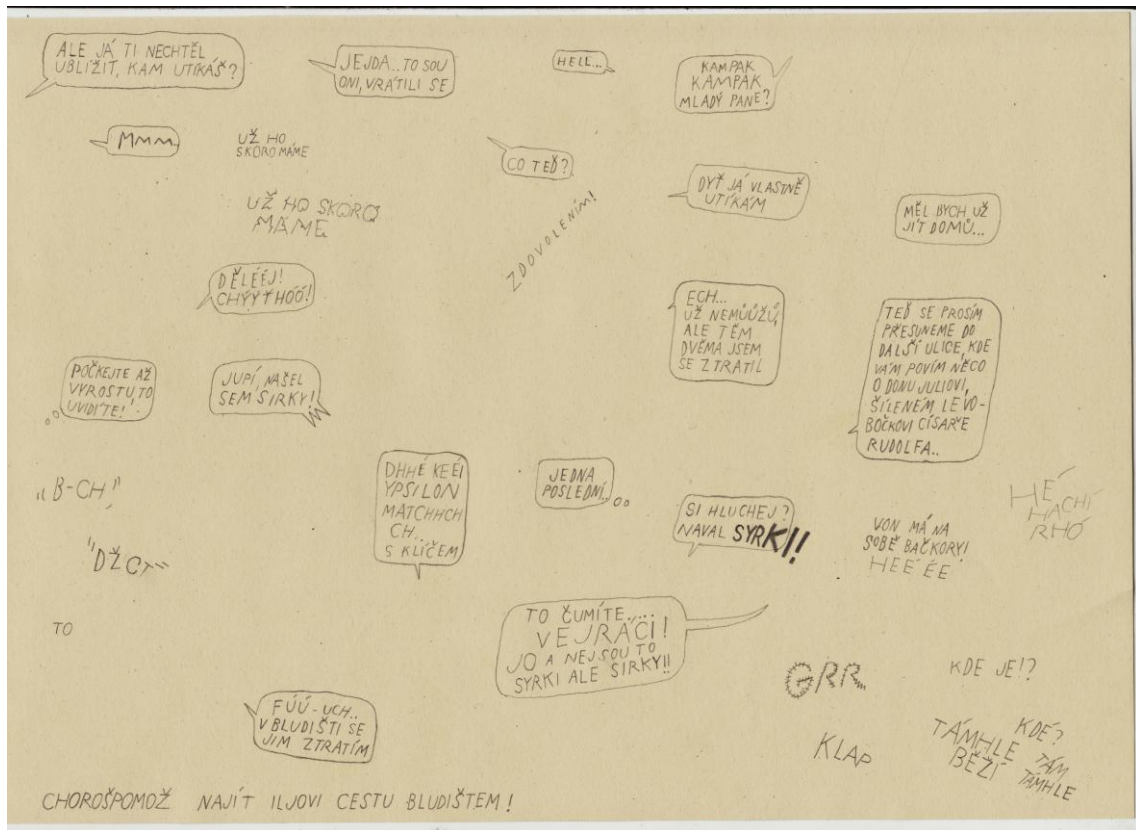 ALE JÁ TI NECHTĚL
UBLÍŽIT, KAM UTÍKÁŠ?
JEJDA..TO SOU
ONI, VRÁTILI SE
HELE...
KAMPAK
KAMPAK
MLADÝ PANE?
MMM
UŽ HO
SKORO MÁME
CO TEĎ?
UŽ HO SKORO
MÁME
ZDOVOLENÍM!
DYŤ JÁ VLASTNĚ
UTÍKÁM
MĚL BYCH UŽ
JÍT DOMŮ...
DĚLÉÉJ!
CHÝÝŤHÓÓ!
ECH...
UŽ NEMŮŮŽŮ,
ALE TĚM
DVĚMA JSEM
SE ZTRATIL
TEĎ SE PROSÍM
PŘESUNEME DO
DALŠÍ ULICE, KDE
VÁM POVÍM NĚCO
O DONU JULIOVI,
ŠÍLENÉM LEVO-
BOČKOVI CÍSAŘE
RUDOLFA..
POČKEJTE AŽ
VYROSTU, TO
UVIDÍTE!
JUPÍ, NAŠEL
SEM SIRKY!
"B-CH"
"DŽCT"
TO
DHHÉ KEÉÍ
YPSILON
MATCHHCH
CH...
S KLÍČEM
JEDNA
POSLEDNÍ..
SI HLUCHEJ?
NAVAL SYRKI!!
VON MÁ NA
SOBĚ BAČKORY!
HEÉÉE
HÉ
HACHÍ
RHÓ
TO ČUMÍTE....
VEJRÁČI!
JO A NEJSOU TO
SYRKI ALE SIRKY!!
FÚÚ-UCH..
V BLUDIŠTI SE
JIM ZTRATÍM
GRR
KLAP
KDE JE!?
KDÉ?
TÁMHLE TÁM
BĚŽÍ TÁMHLE
CHOROŠPOMOŽ NAJÍT ILJOVI CESTU BLUDIŠTEM!